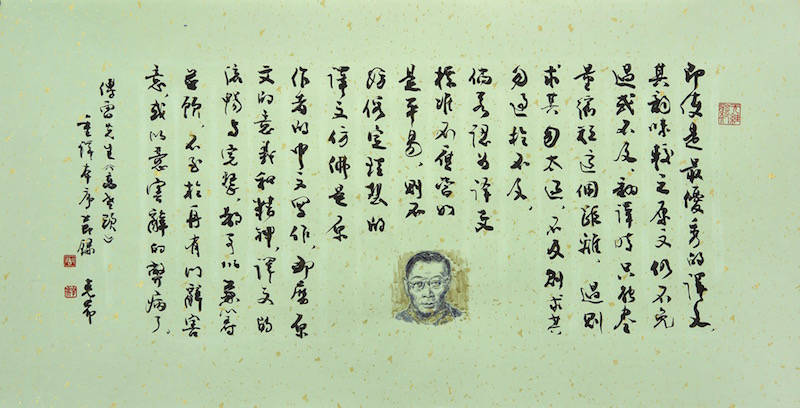 即使是最優秀的譯文,
其韻味較之原文仍不免
過或不及,翻譯時只能盡
量縮短這個距離,過則
求其勿太過,不及則求其
勿過於不及,
倘若認為譯文
標準不應當如
是平易,則不
妨假定理想的
譯文仿佛是原
作者的中文寫作,那麼原
文的意義和精神,譯文的
流暢與完整,都可以兼籌
並顧,不至於再有以辭害
意,或以意害辭的弊病了。
傅雷先生《高老頭》
重譯本序節錄 克希